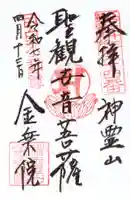 奉拝
神霊山
聖観世音菩薩
金乗院
令和七年
四月十三日